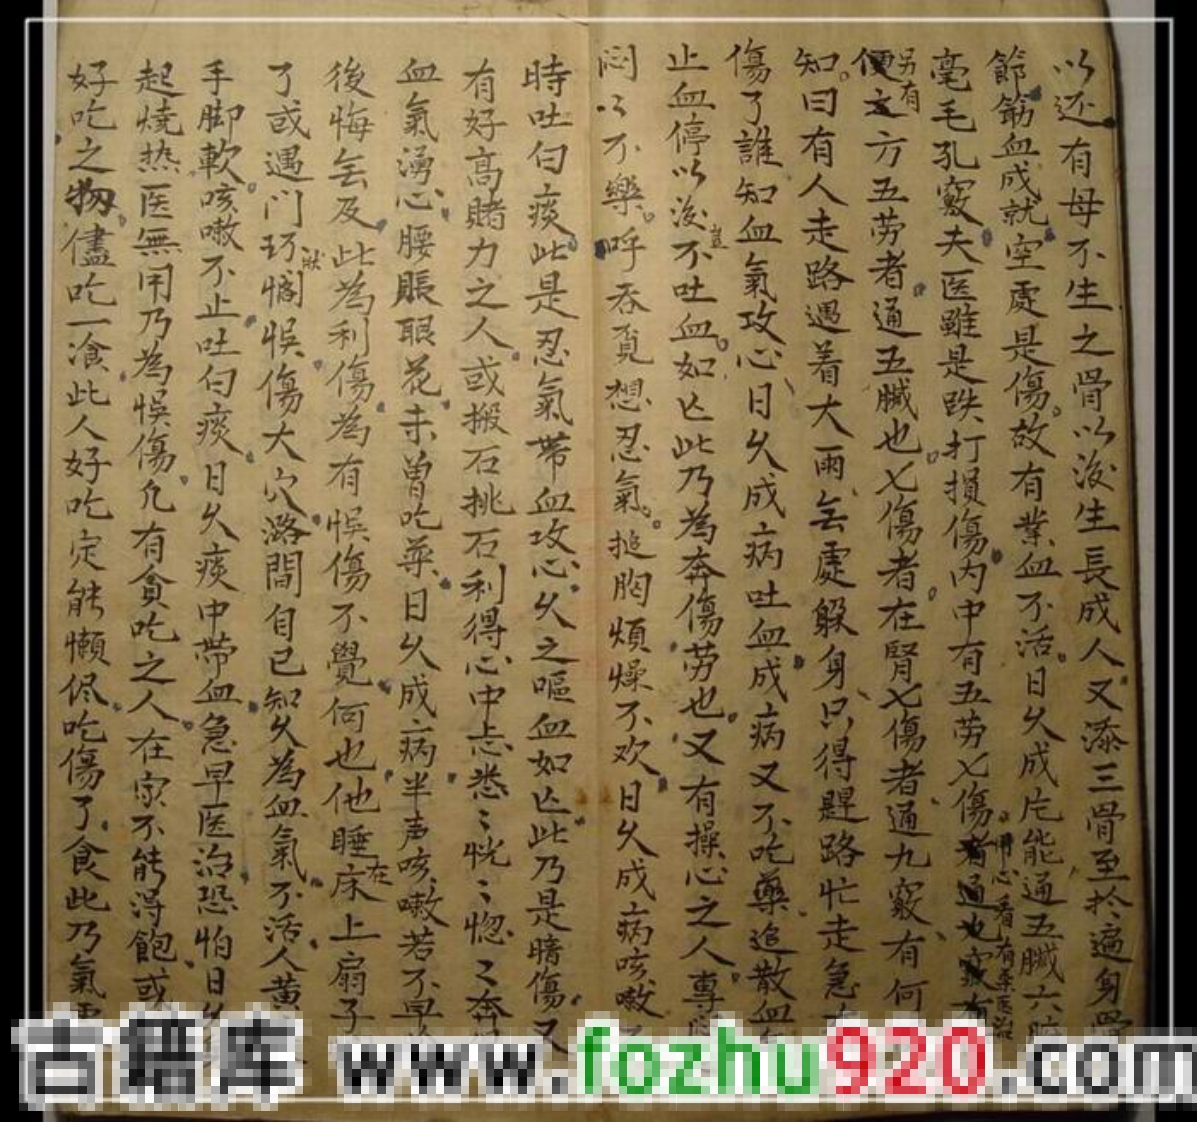 以还有母不生之骨以後生長成人又添三骨至於遍身骨
節筋血成就空處是傷故有業血不活日久成疕能通五臟六腑
毫毛孔竅夫医雖是跌打損傷内中有五劳七傷者通也竅有
用心看有桑医治
便之方五劳者通五臟也七傷者在腎七傷者通九竅有何
另有
知曰有人走路遇着大雨无處躲身只得趕路忙走急
傷了誰知血氣攻心日久成病吐血成病又不吃藥追散血
止血停以後不吐血如亡此乃為奔傷劳也又有操心之人專
豈
闷以不樂呼吞覔想忍氣搥胸煩燥不欢日久成病咳嗽
時吐白痰此是忍氣帶血攻心久之嘔血如亡此乃是暗傷又
有好高賭力之人或搬石挑石利得心中忐悉〻恍〻惚〻奔
血氣湧心腰脹眼花未曾吃药日久成病半声咳嗽若不早
後悔无及此為利傷為有悮傷不覺何也他睡床上扇子
在
了或遇门巧悮傷大穴潞間自已知久為血氣不活人黄
手脚軟咳嗽不止吐白痰日久痰中带血急早医治恐怕日久
起燒热医無用乃為悮傷凢有貪吃之人在家不能得飽或
好吃之物儘吃一飡此人好吃定能懶侭吃傷了食此乃氣
古籍库 www.fozhu920.com